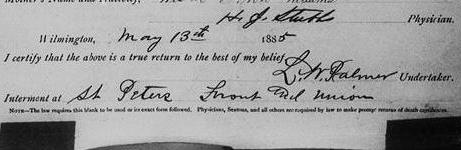 H. J. Stubbs Physician.
Wilmington, May 13th 1885
I certify that the above is a true return to the best of my belief
L. W. Palmer Undertaker.
Interment at St Peters Front and Union
NOTE—The law requires this blank to be used or its exact form followed. Physicians, Sextons, and all others are required by law to make prompt returns of death certificates.